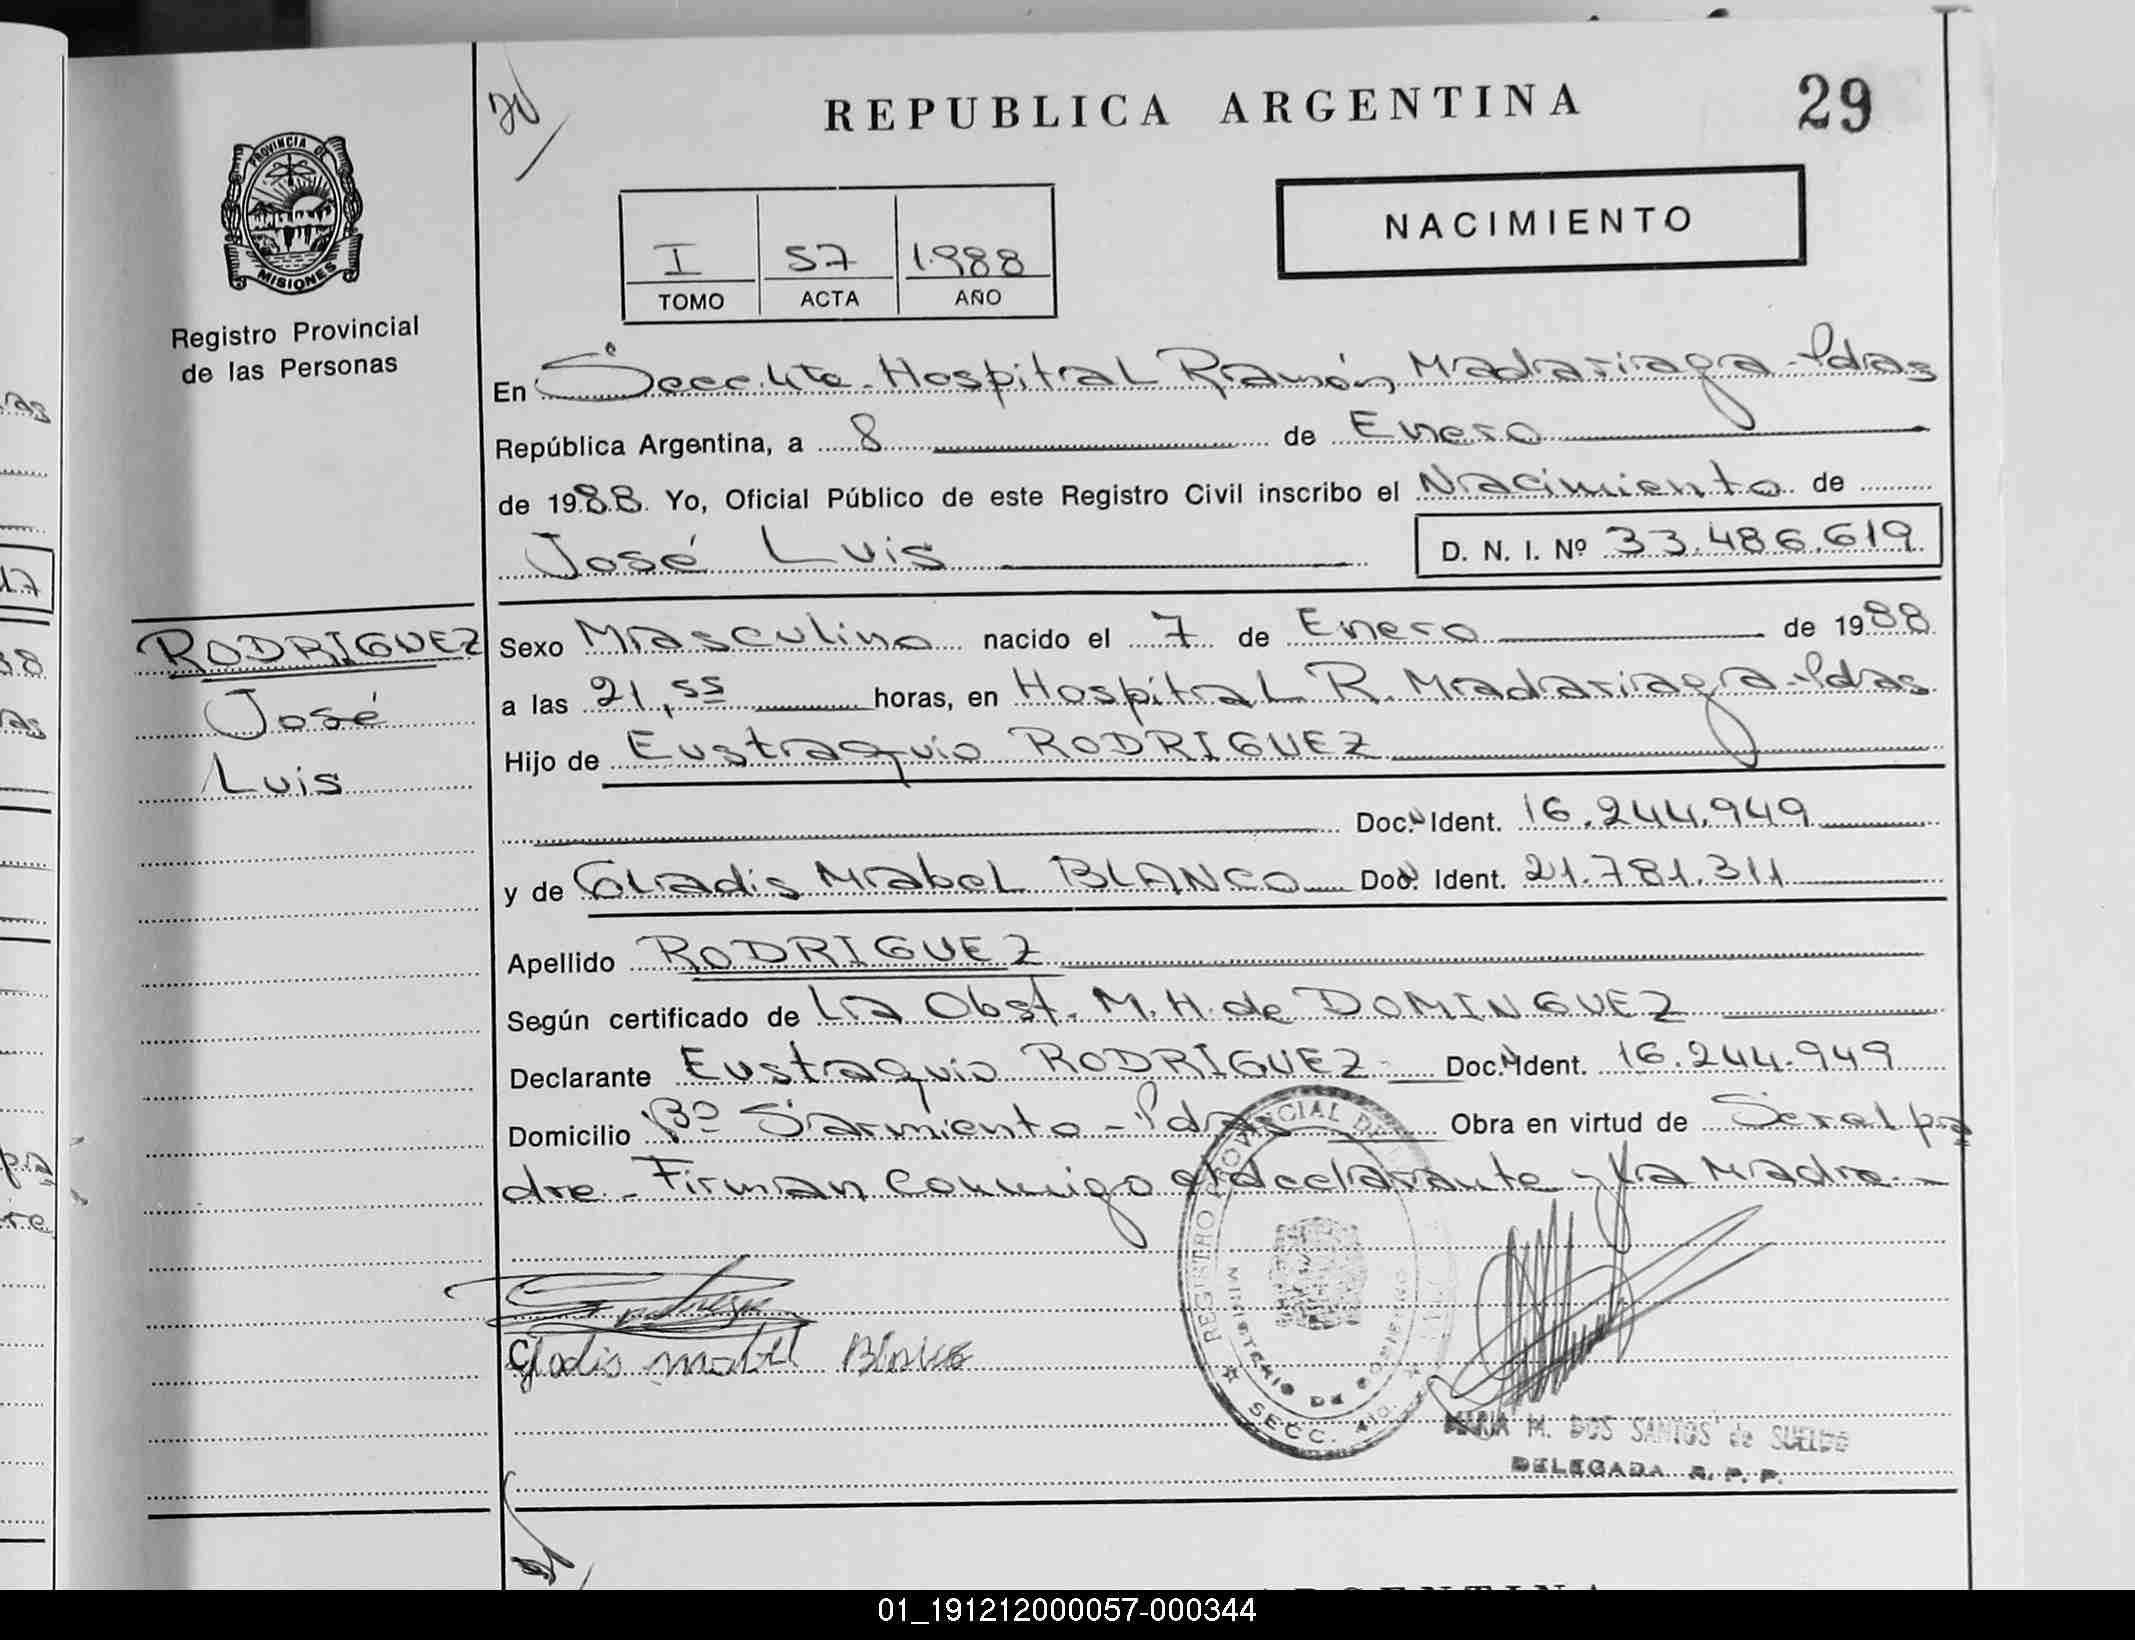 REPUBLICA ARGENTINA
29
NACIMIENTO
I 57 1988
TOMO ACTA AÑO
PROVINCIA DE
MISIONES
Registro Provincial
de las Personas
RODRIGUEZ
José
Luis
En Secc. 4ta. Hospital Ramón Madariaga - Pdas
República Argentina, a 8 de Enero
de 1988. Yo, Oficial Público de este Registro Civil inscribo el Nacimiento de
José Luis D. N. I. Nº 33.486.619
Sexo Masculino nacido el 7 de Enero de 1988
a las 21,55 horas, en Hospital R. Madariaga - Pdas.
Hijo de Eustaquio RODRIGUEZ
Doc. N Ident. 16.244.949
y de Gladis Mabel BLANCO Doc. N Ident. 21.781.311
Apellido RODRIGUEZ
Según certificado de La Obst. M. H. de DOMINGUEZ
Declarante Eustaquio RODRIGUEZ - Doc. N Ident. 16.244.949
Domicilio Bº Sarmiento - Pdas Obra en virtud de Ser el pa
dre - Firman conmigo el declarante y la Madre. -
Gladis Mabel Blanco
REGISTRO PROVINCIAL DE
MINISTERIO DE GOBIERNO
SECC. 4ta.
MARIA M. DOS SANTOS de SUELDO
DELEGADA R. P. P.
ARGENTINA
01_191212000057-000344